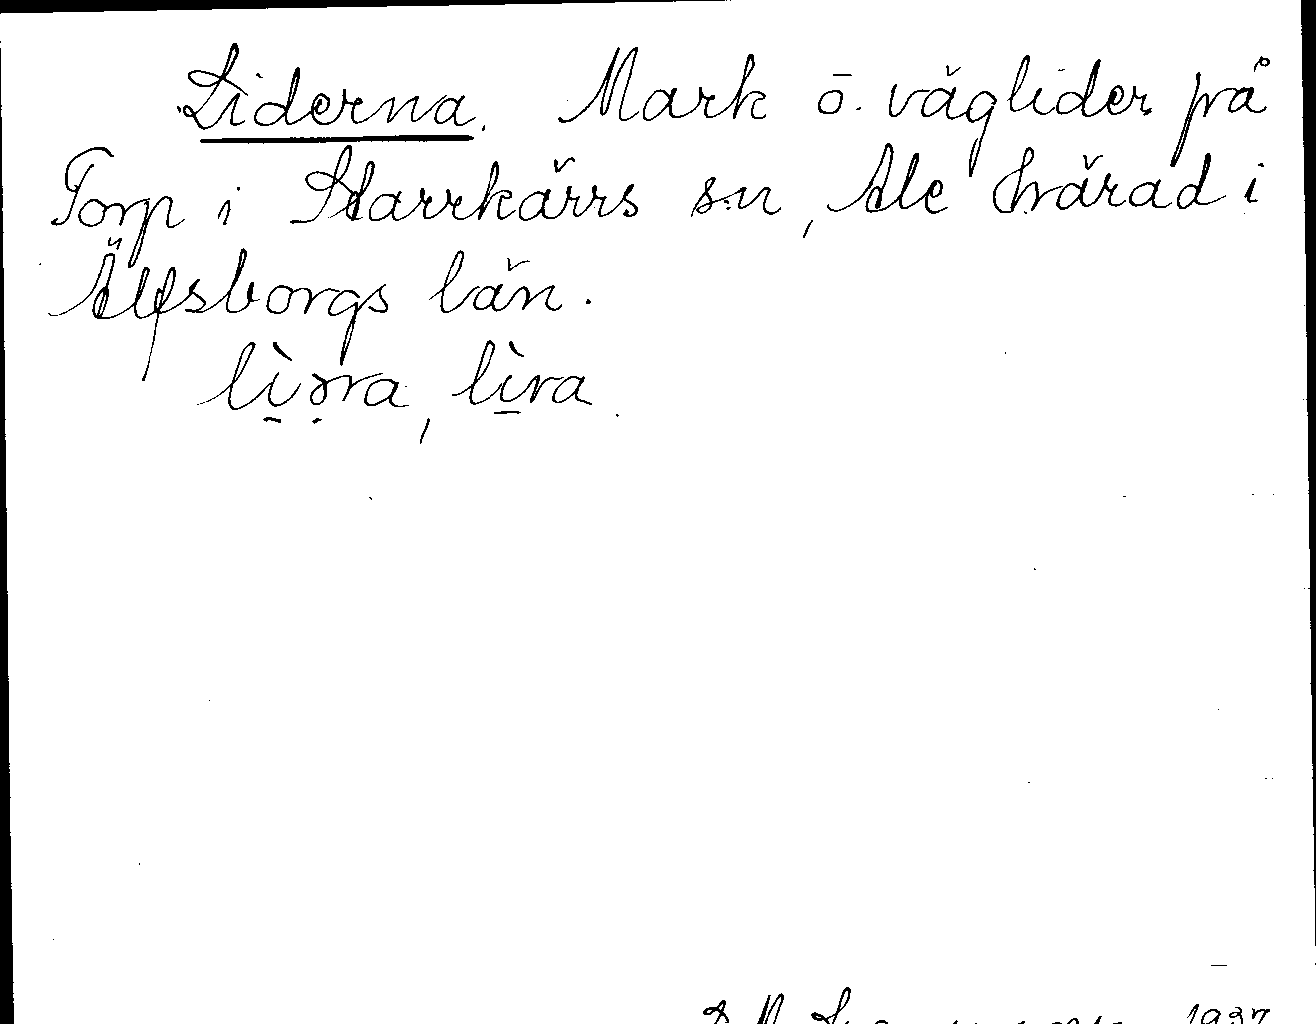 Liderna. Mark o. väglider på
Torp i Starrkärrs sn, Ale härad i
Älfsborgs län.
lìəra, lìra
1937